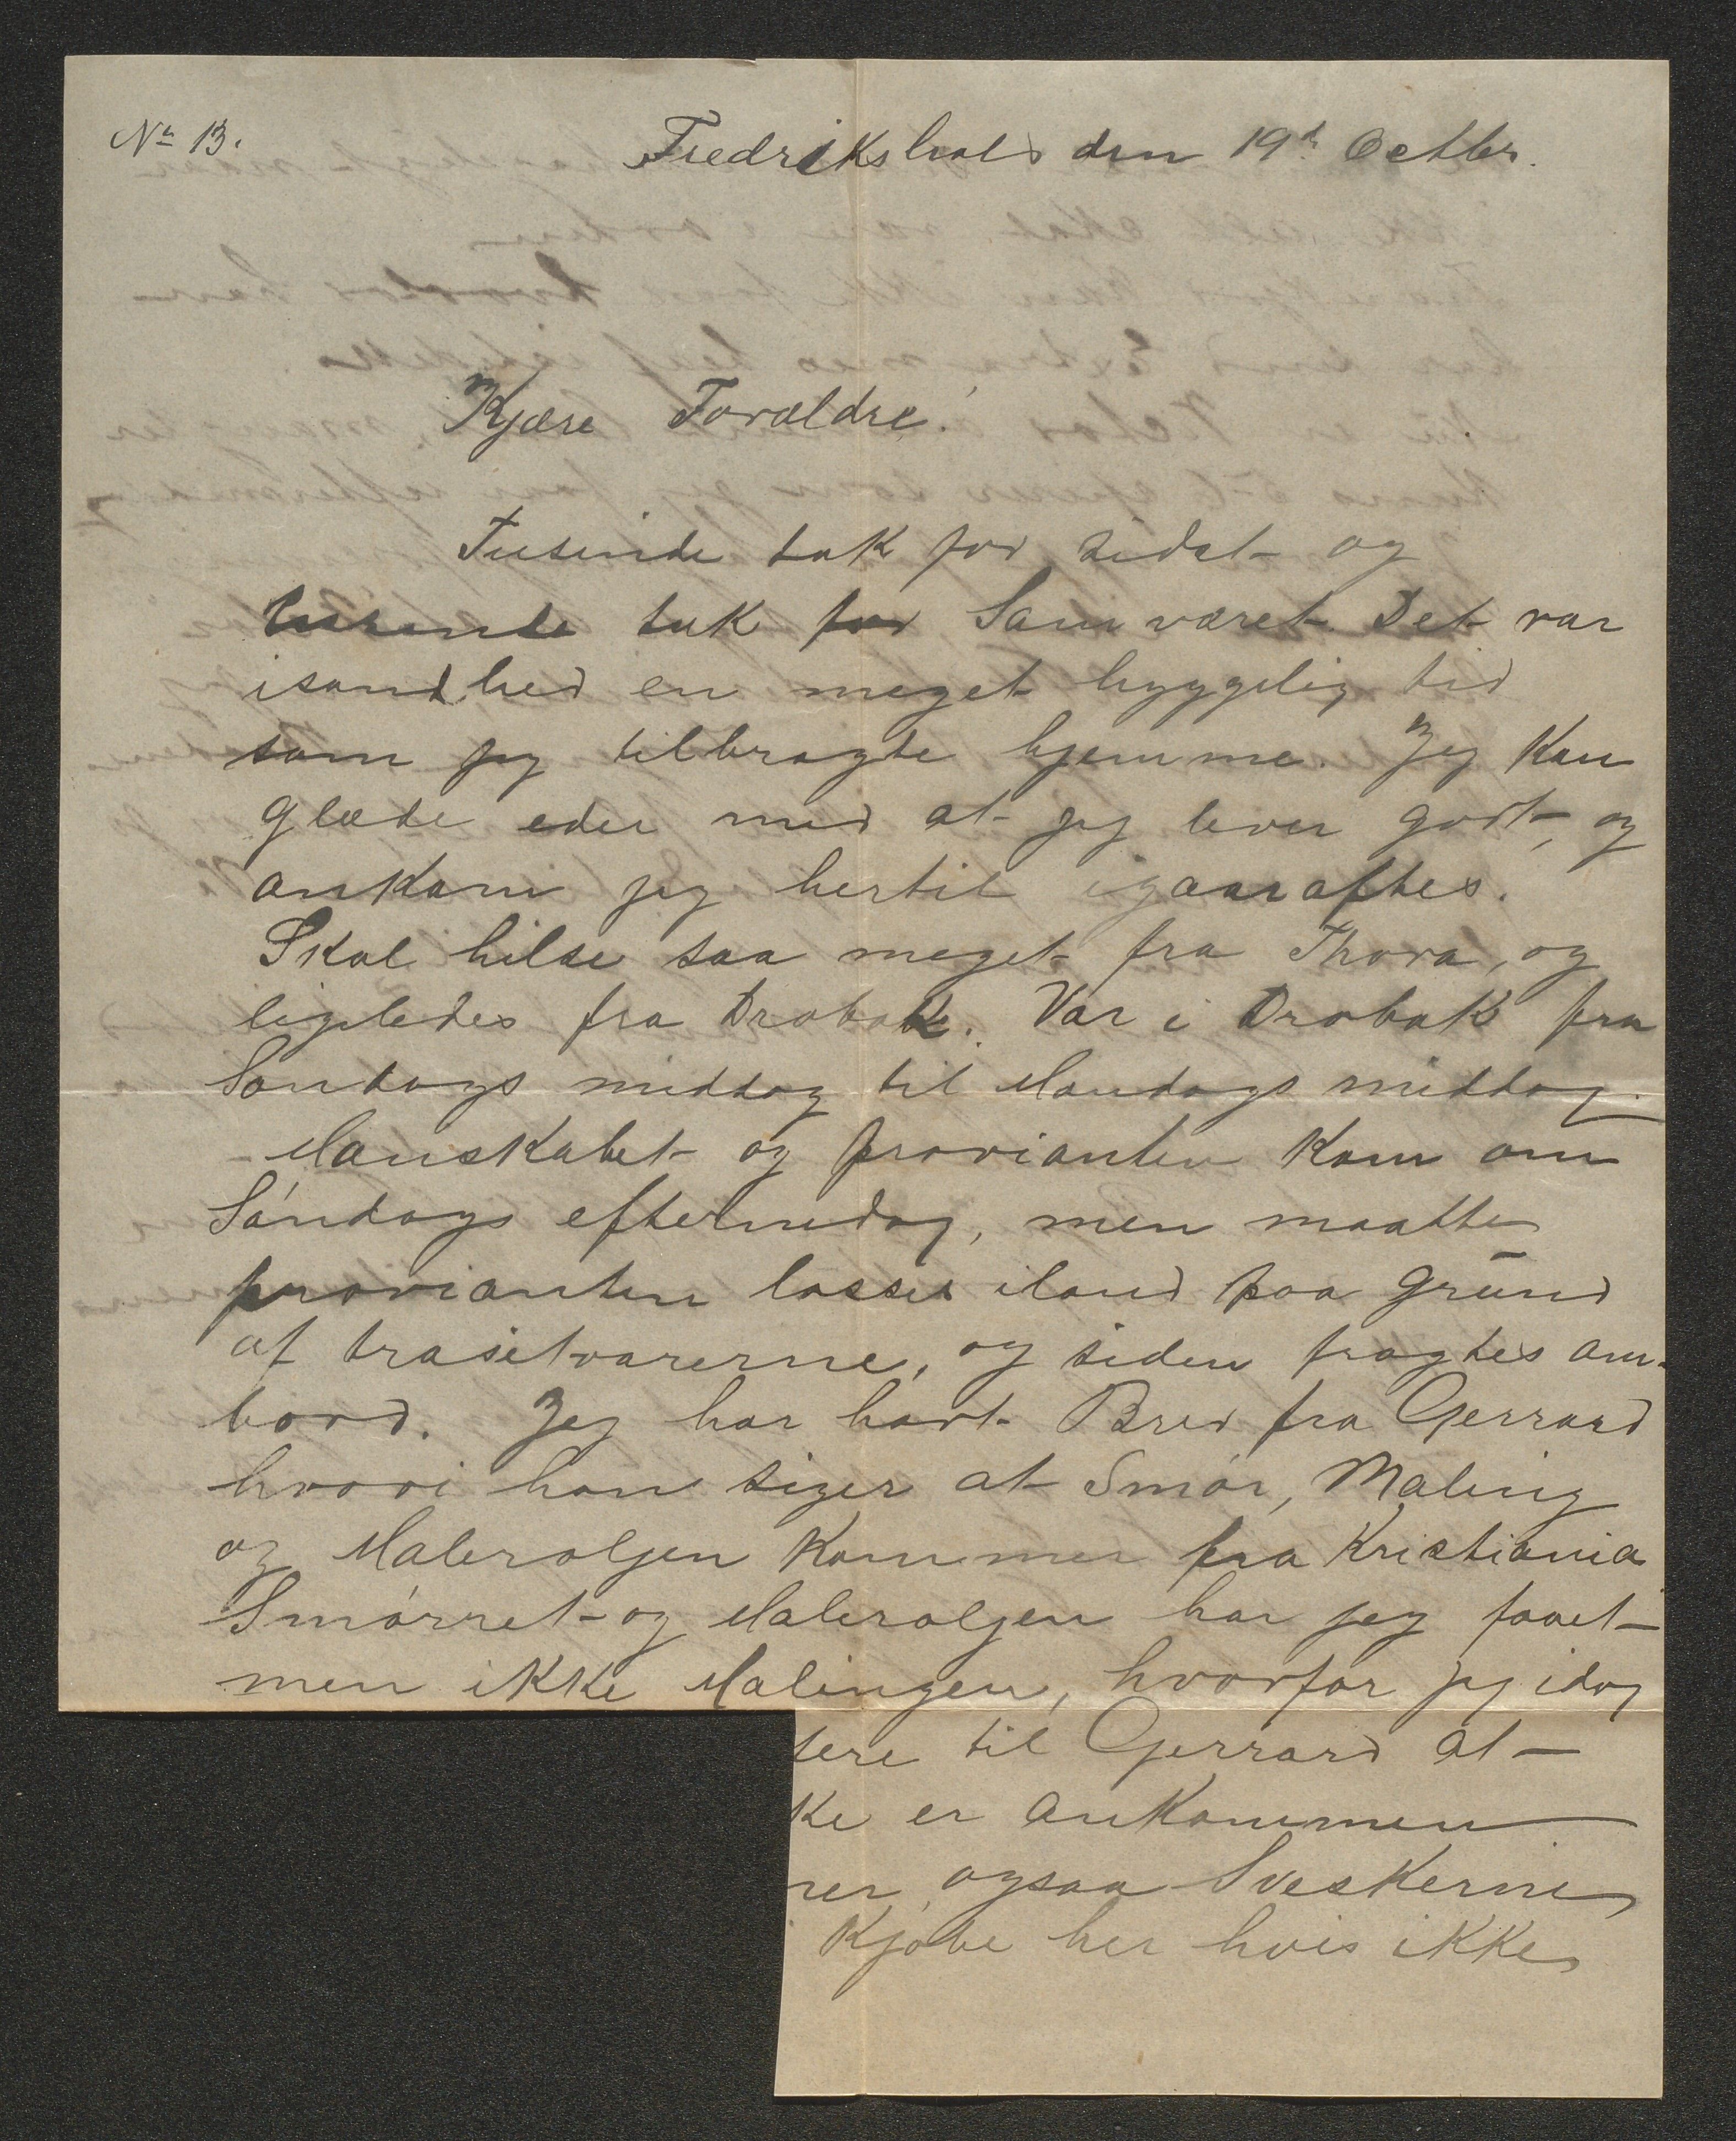 No 13.
Fredrikshald den 19d Octbr.
Kjære Forældre!
Tusinde tak for sidst og
tusende tak for Samværet. Det var
isandhed en meget hyggelig tid
som jeg tilbragte hjemme. Jeg kan
glæde eder med at jeg lever godt, og
ankom jeg hertil igaaraftes.
Skal hilse saa meget fra Thora, og
ligeledes fra Drobak. Var i Drobak fra
Søndags middag til Mandags middag.
Manskabet og provianten kom om
Søndags eftermidag, men maatte
provianten losses iland paa Gründ
af trasitvarerne, og siden fragtes om-
bord. Jeg har havt Brev fra Gerrard
hvori han siger at Smør, Maling
og Maleroljen kommer fra Kristiania
Smørret og Maleroljen har jeg faaet
men ikke Malingen, hvorfor jeg idag
tere til Gerrard at
ke er ankommen
rer ogsaa Sveskerne
Kjøbe her hvis ikke